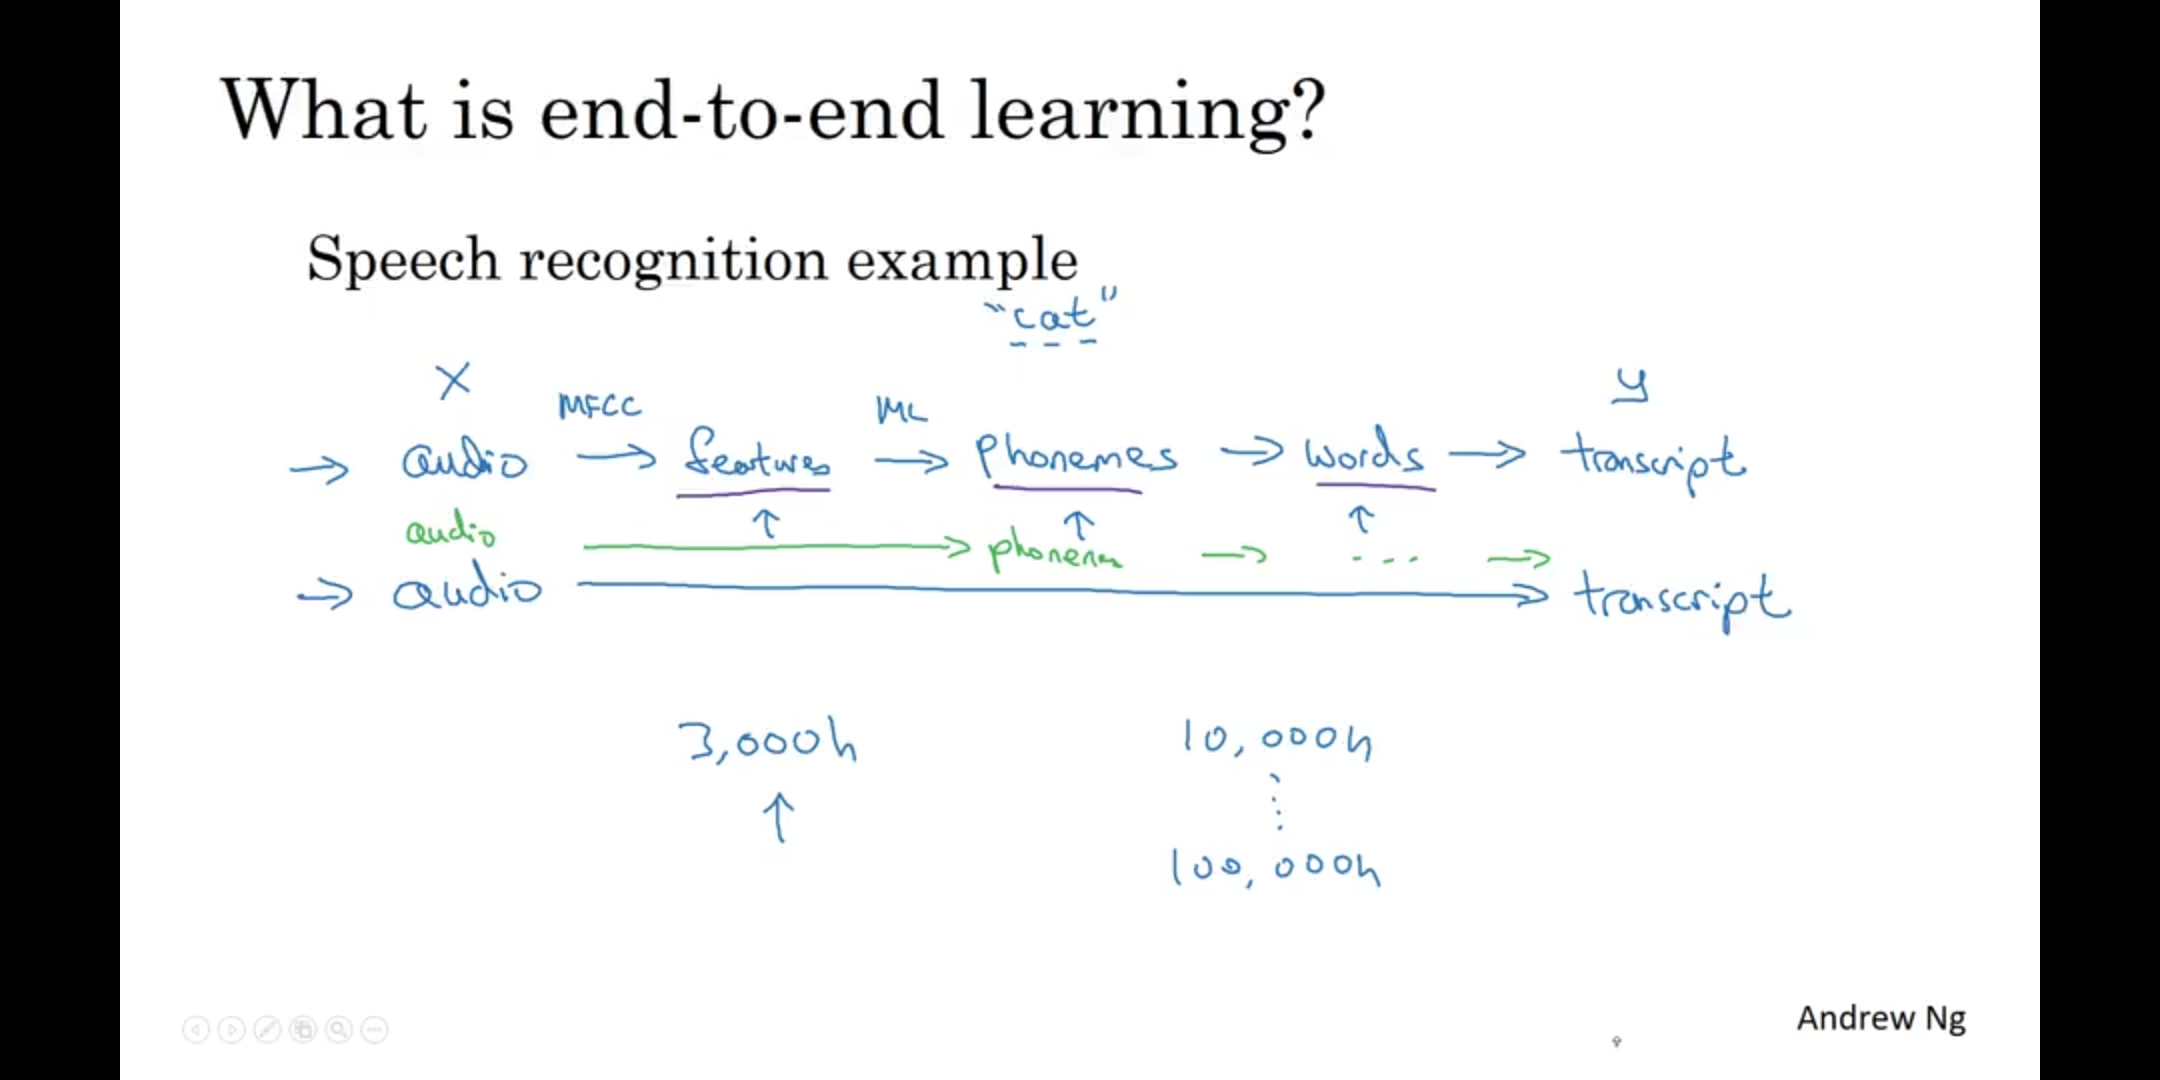 What is end-to-end learning?
Speech recognition example
"cat"
X
y
MFCC
ML
→ audio → features → phonemes → words → transcript
↑ ↑ ↑
audio → → ... →
→ audio → transcript
3,000h
10,000h
↑
⋮
100,000h
Andrew Ng